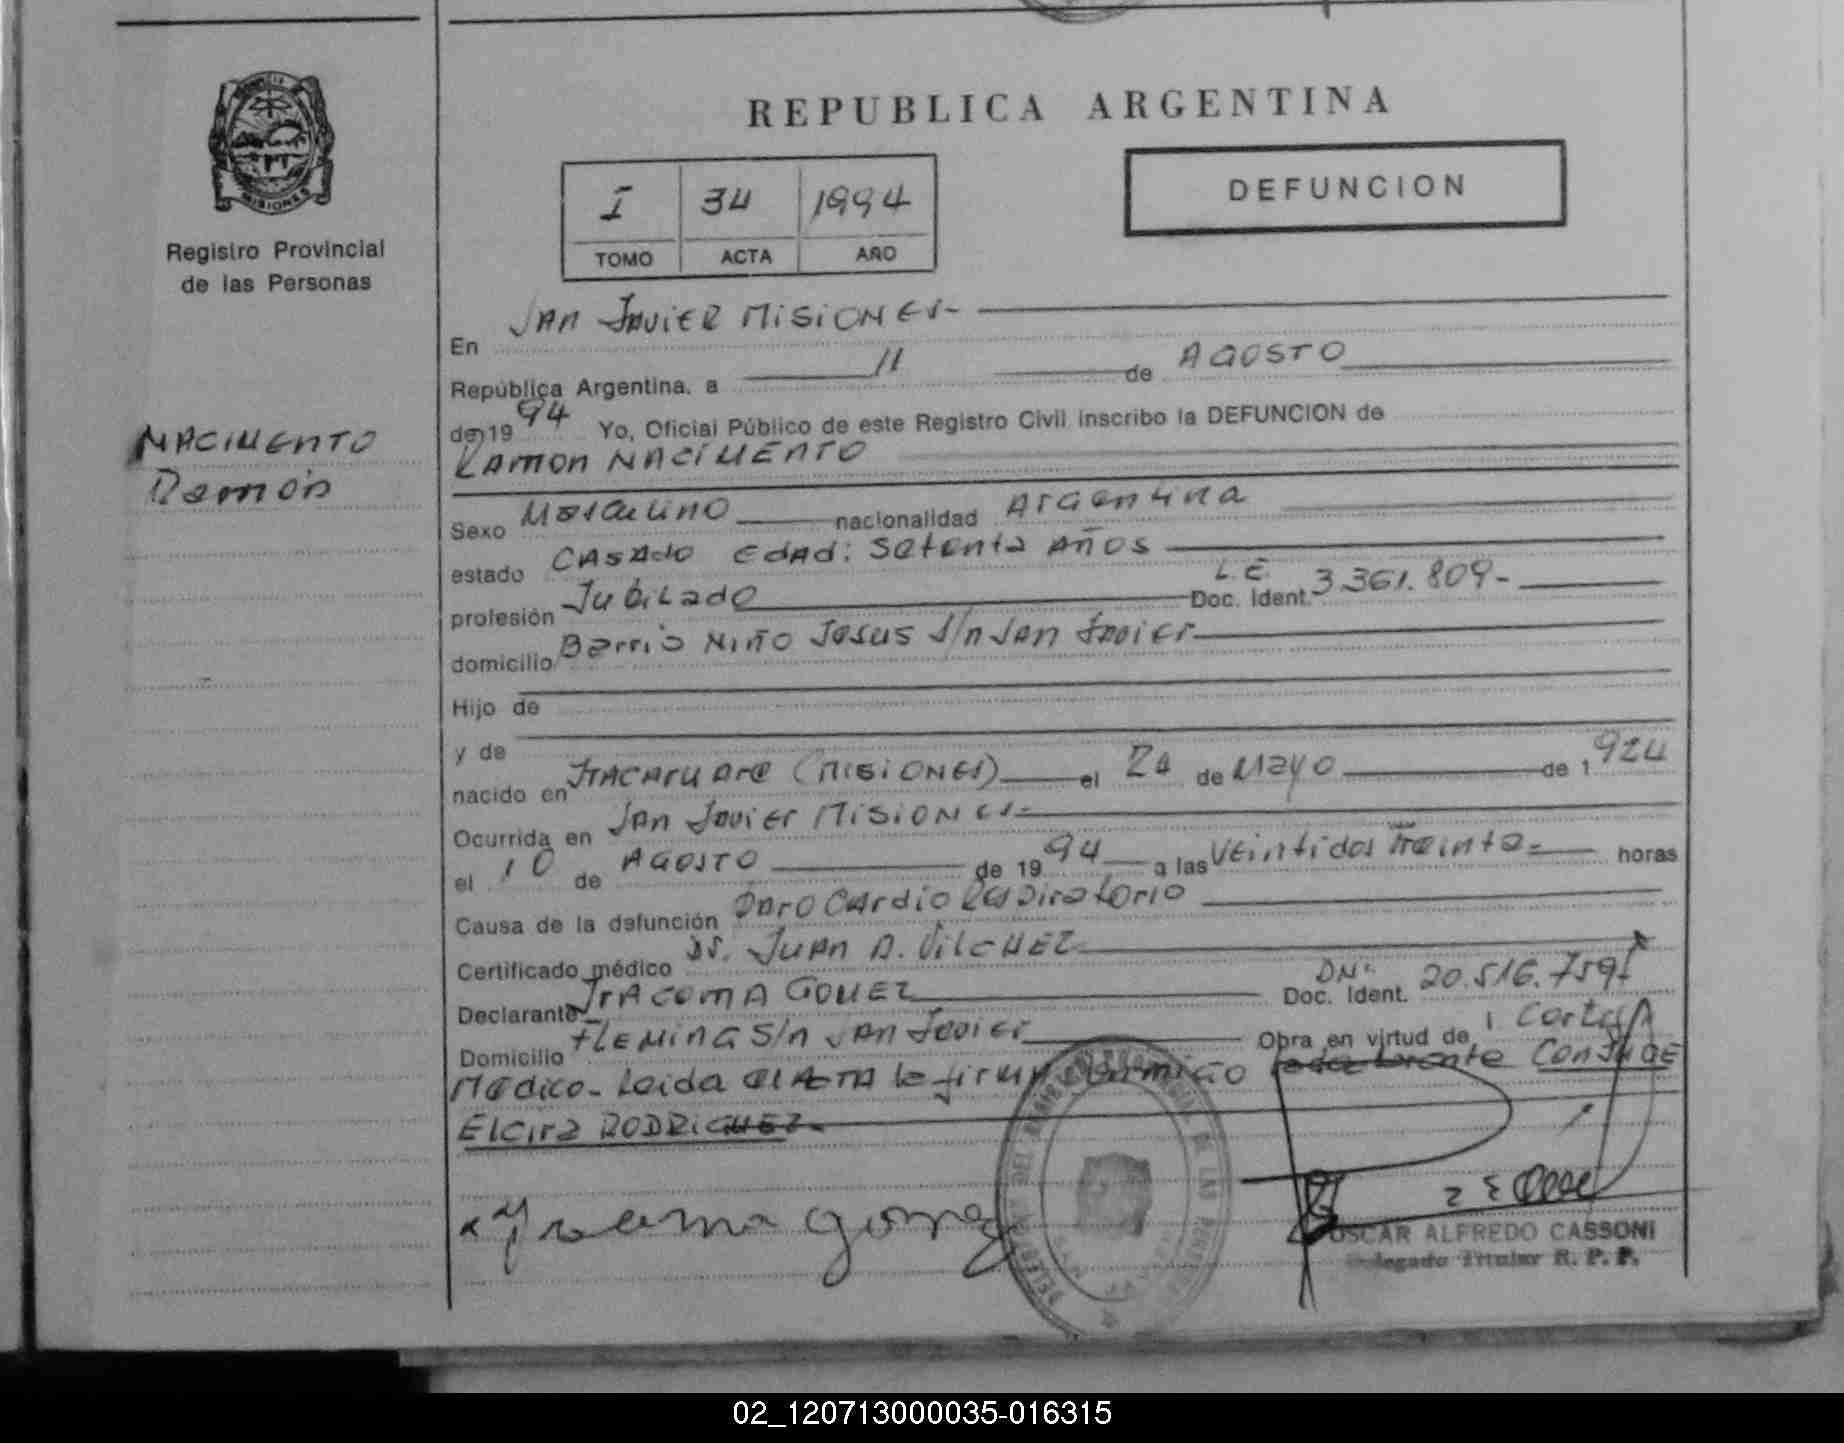 REPUBLICA ARGENTINA
I 34 1994
TOMO ACTA AÑO
DEFUNCION
PROVINCIA DE
MISIONES
Registro Provincial
de las Personas
NACIMENTO
Ramón
En SAN JAVIER MISIONES-
República Argentina, a 11 de AGOSTO
de 19 94 Yo, Oficial Público de este Registro Civil inscribo la DEFUNCION de
RAMON NACIMENTO
Sexo Masculino nacionalidad Argentina
estado CASADO EDAD: Setenta AÑOS
profesión Jubilado L.E. Doc. Ident. 3.361.809-
domicilio Barrio Niño Jesus S/n San Javier
Hijo de
y de
nacido en ITACARUARE (MISIONES) el 24 de Mayo de 1 924
Ocurrida en San Javier MISIONES-
el 10 de AGOSTO de 19 94 a las Veintidos treinta= horas
Causa de la defunción Paro Cardio Respiratorio
Certificado médico Dr. JUAN A. VILCHEZ
Declarante IrACEMA GOMEZ DNI. Doc. Ident. 20.516.759
Domicilio FLEMING S/n SAN Javier Obra en virtud de Certif
Medico- Leida el ACTA la firma conmigo CONJUGE
Elcira RODRIGUEZ-
Iracema Gomez
OSCAR ALFREDO CASSONI
Delegado Titular R. P. P.
02_120713000035-016315